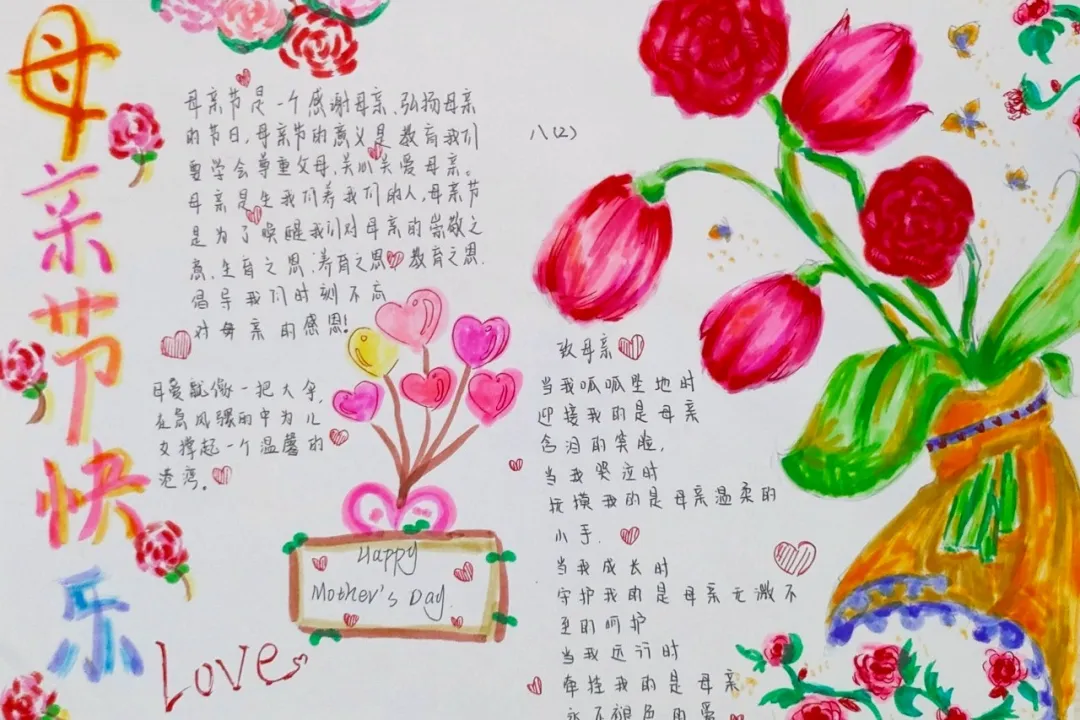 母亲节快乐
母亲节是一个感谢母亲、弘扬母亲
的节日,母亲节的意义是教育我们
要学会尊重父母,关心关爱母亲。
母亲是生我们养我们的人,母亲节
是为了唤醒我们对母亲的崇敬之
意,生育之恩.养育之恩 教育之恩.
倡导我们时刻不忘
对母亲的感恩!
母爱就像一把大伞,
在急风骤雨中为儿
女撑起一个温馨的
港湾。
Happy
Mother's Day.
Love
八(2)
致母亲
当我呱呱坠地时
迎接我的是母亲
含泪的笑脸,
当我哭泣时
抚摸我的是母亲温柔的
小手.
当我成长时
守护我的是母亲无微不
至的呵护
当我远行时
牵挂我的是母亲
永不褪色的爱